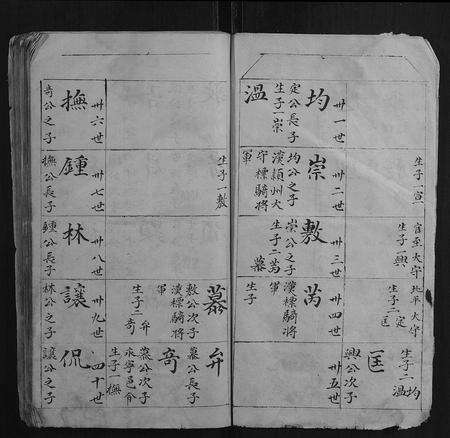 生子一宣
官至太守
生子興
北平太守
生子二定
匡
生子二均
溫
匡
興公次子
卅一世
均
定公長子
生子一崇
溫
卅二世
崇
均公之子
漢穎州太
守標騎將
軍
卅三世
敷
崇公之子
生子二萬
蓦
卅四世
芮
漢標騎將
軍
生子
卅五世
生子一敷
蓦
敷公次子
漢標騎將
軍
生子二弁
奇
弁
蓦公長子
奇
蓦公次子
永學邑令
生子一撫
卅六世
撫
奇公之子
卅七世
鍾
撫公長子
卅八世
林
鍾公長子
卅九世
讓
林公之子
四十世
侃
讓公之子